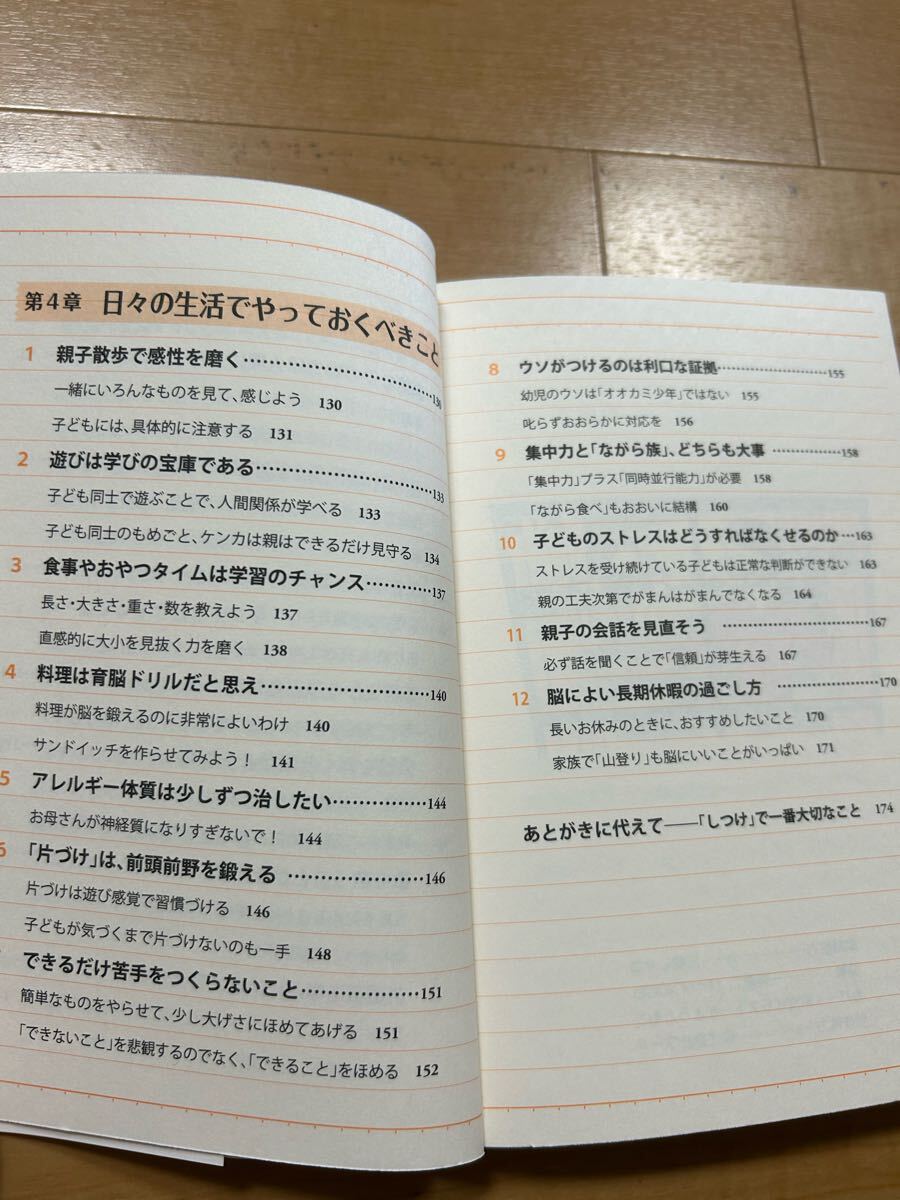 第4章 日々の生活でやっておくべきこと
1 親子散歩で感性を磨く…………………130
一緒にいろんなものを見て、感じよう 130
子どもには、具体的に注意する 131
2 遊びは学びの宝庫である…………………133
子ども同士で遊ぶことで、人間関係が学べる 133
子ども同士のもめごと、ケンカは親はできるだけ見守る 134
3 食事やおやつタイムは学習のチャンス…………137
長さ・大きさ・重さ・数を教えよう 137
直感的に大小を見抜く力を磨く 138
4 料理は育脳ドリルだと思え…………………140
料理が脳を鍛えるのに非常によいわけ 140
サンドイッチを作らせてみよう! 141
5 アレルギー体質は少しずつ治したい……………144
お母さんが神経質になりすぎないで! 144
6 「片づけ」は、前頭前野を鍛える …………………146
片づけは遊び感覚で習慣づける 146
子どもが気づくまで片づけないのも一手 148
できるだけ苦手をつくらないこと………………151
簡単なものをやらせて、少し大げさにほめてあげる 151
「できないこと」を悲観するのでなく、「できること」をほめる 152
8 ウソがつけるのは利口な証拠…………………155
幼児のウソは「オオカミ少年」ではない 155
叱らずおおらかに対応を 156
9 集中力と「ながら族」、どちらも大事 ……………158
「集中力」プラス「同時並行能力」が必要 158
「ながら食べ」もおおいに結構 160
10 子どものストレスはどうすればなくせるのか…163
ストレスを受け続けている子どもは正常な判断ができない 163
親の工夫次第でがまんはがまんでなくなる 164
11 親子の会話を見直そう …………………167
必ず話を聞くことで「信頼」が芽生える 167
12 脳によい長期休暇の過ごし方 …………………170
長いお休みのときに、おすすめしたいこと 170
家族で「山登り」も脳にいいことがいっぱい 171
あとがきに代えて――「しつけ」で一番大切なこと 174